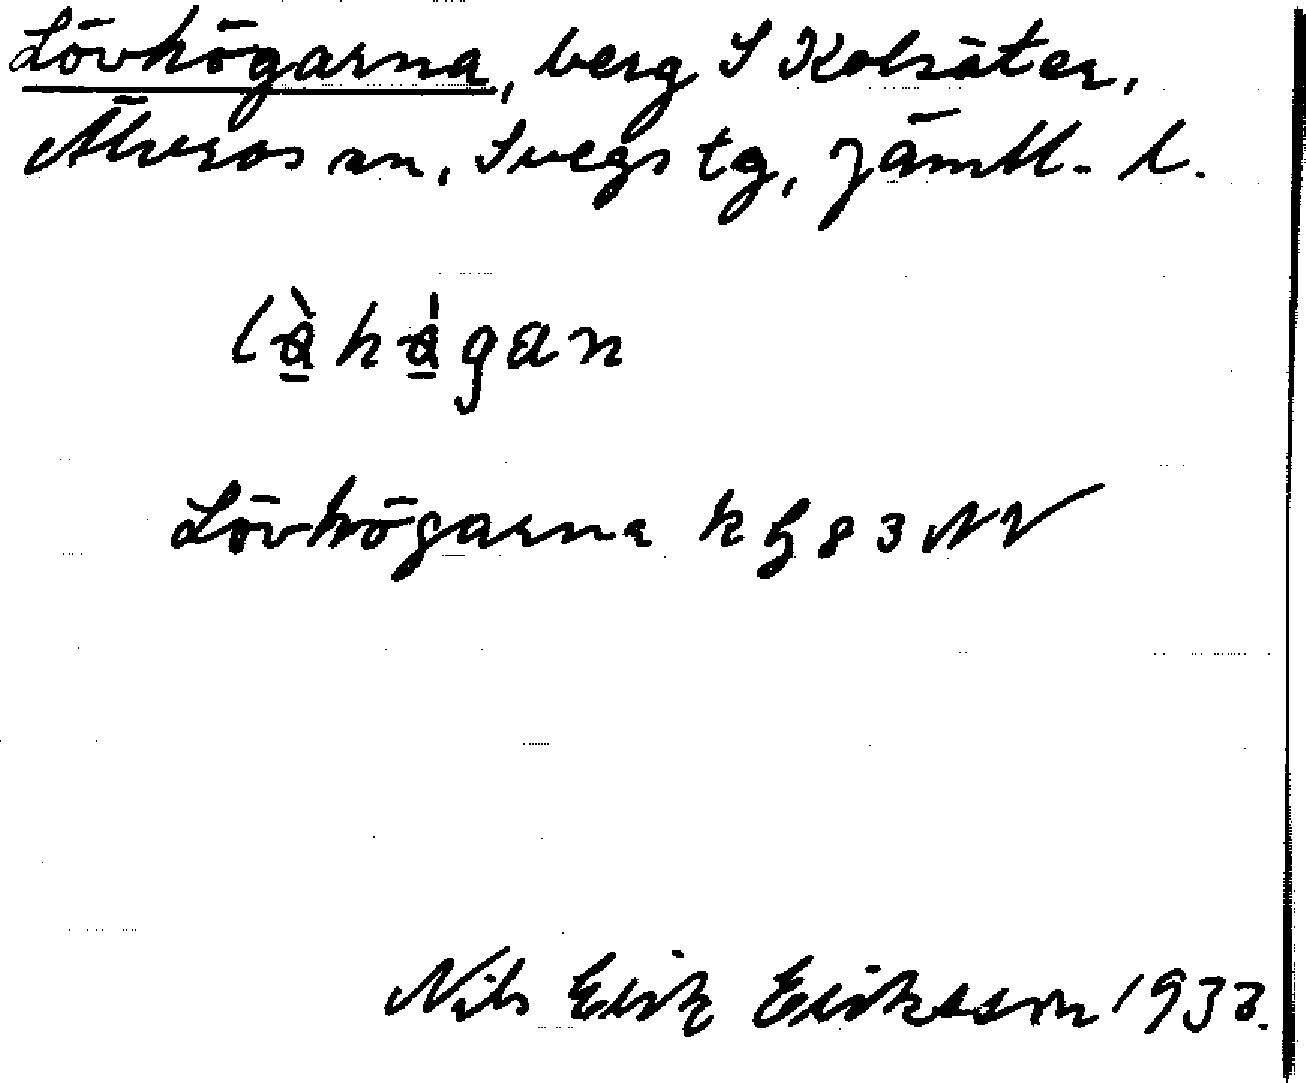 Lövhögarna, berg S Kolsäter,
Älvros sn, Svegs tg, Jämtl. l.
Lövhögarna k bl 83 NV
Nils Erik Eriksson 1933.